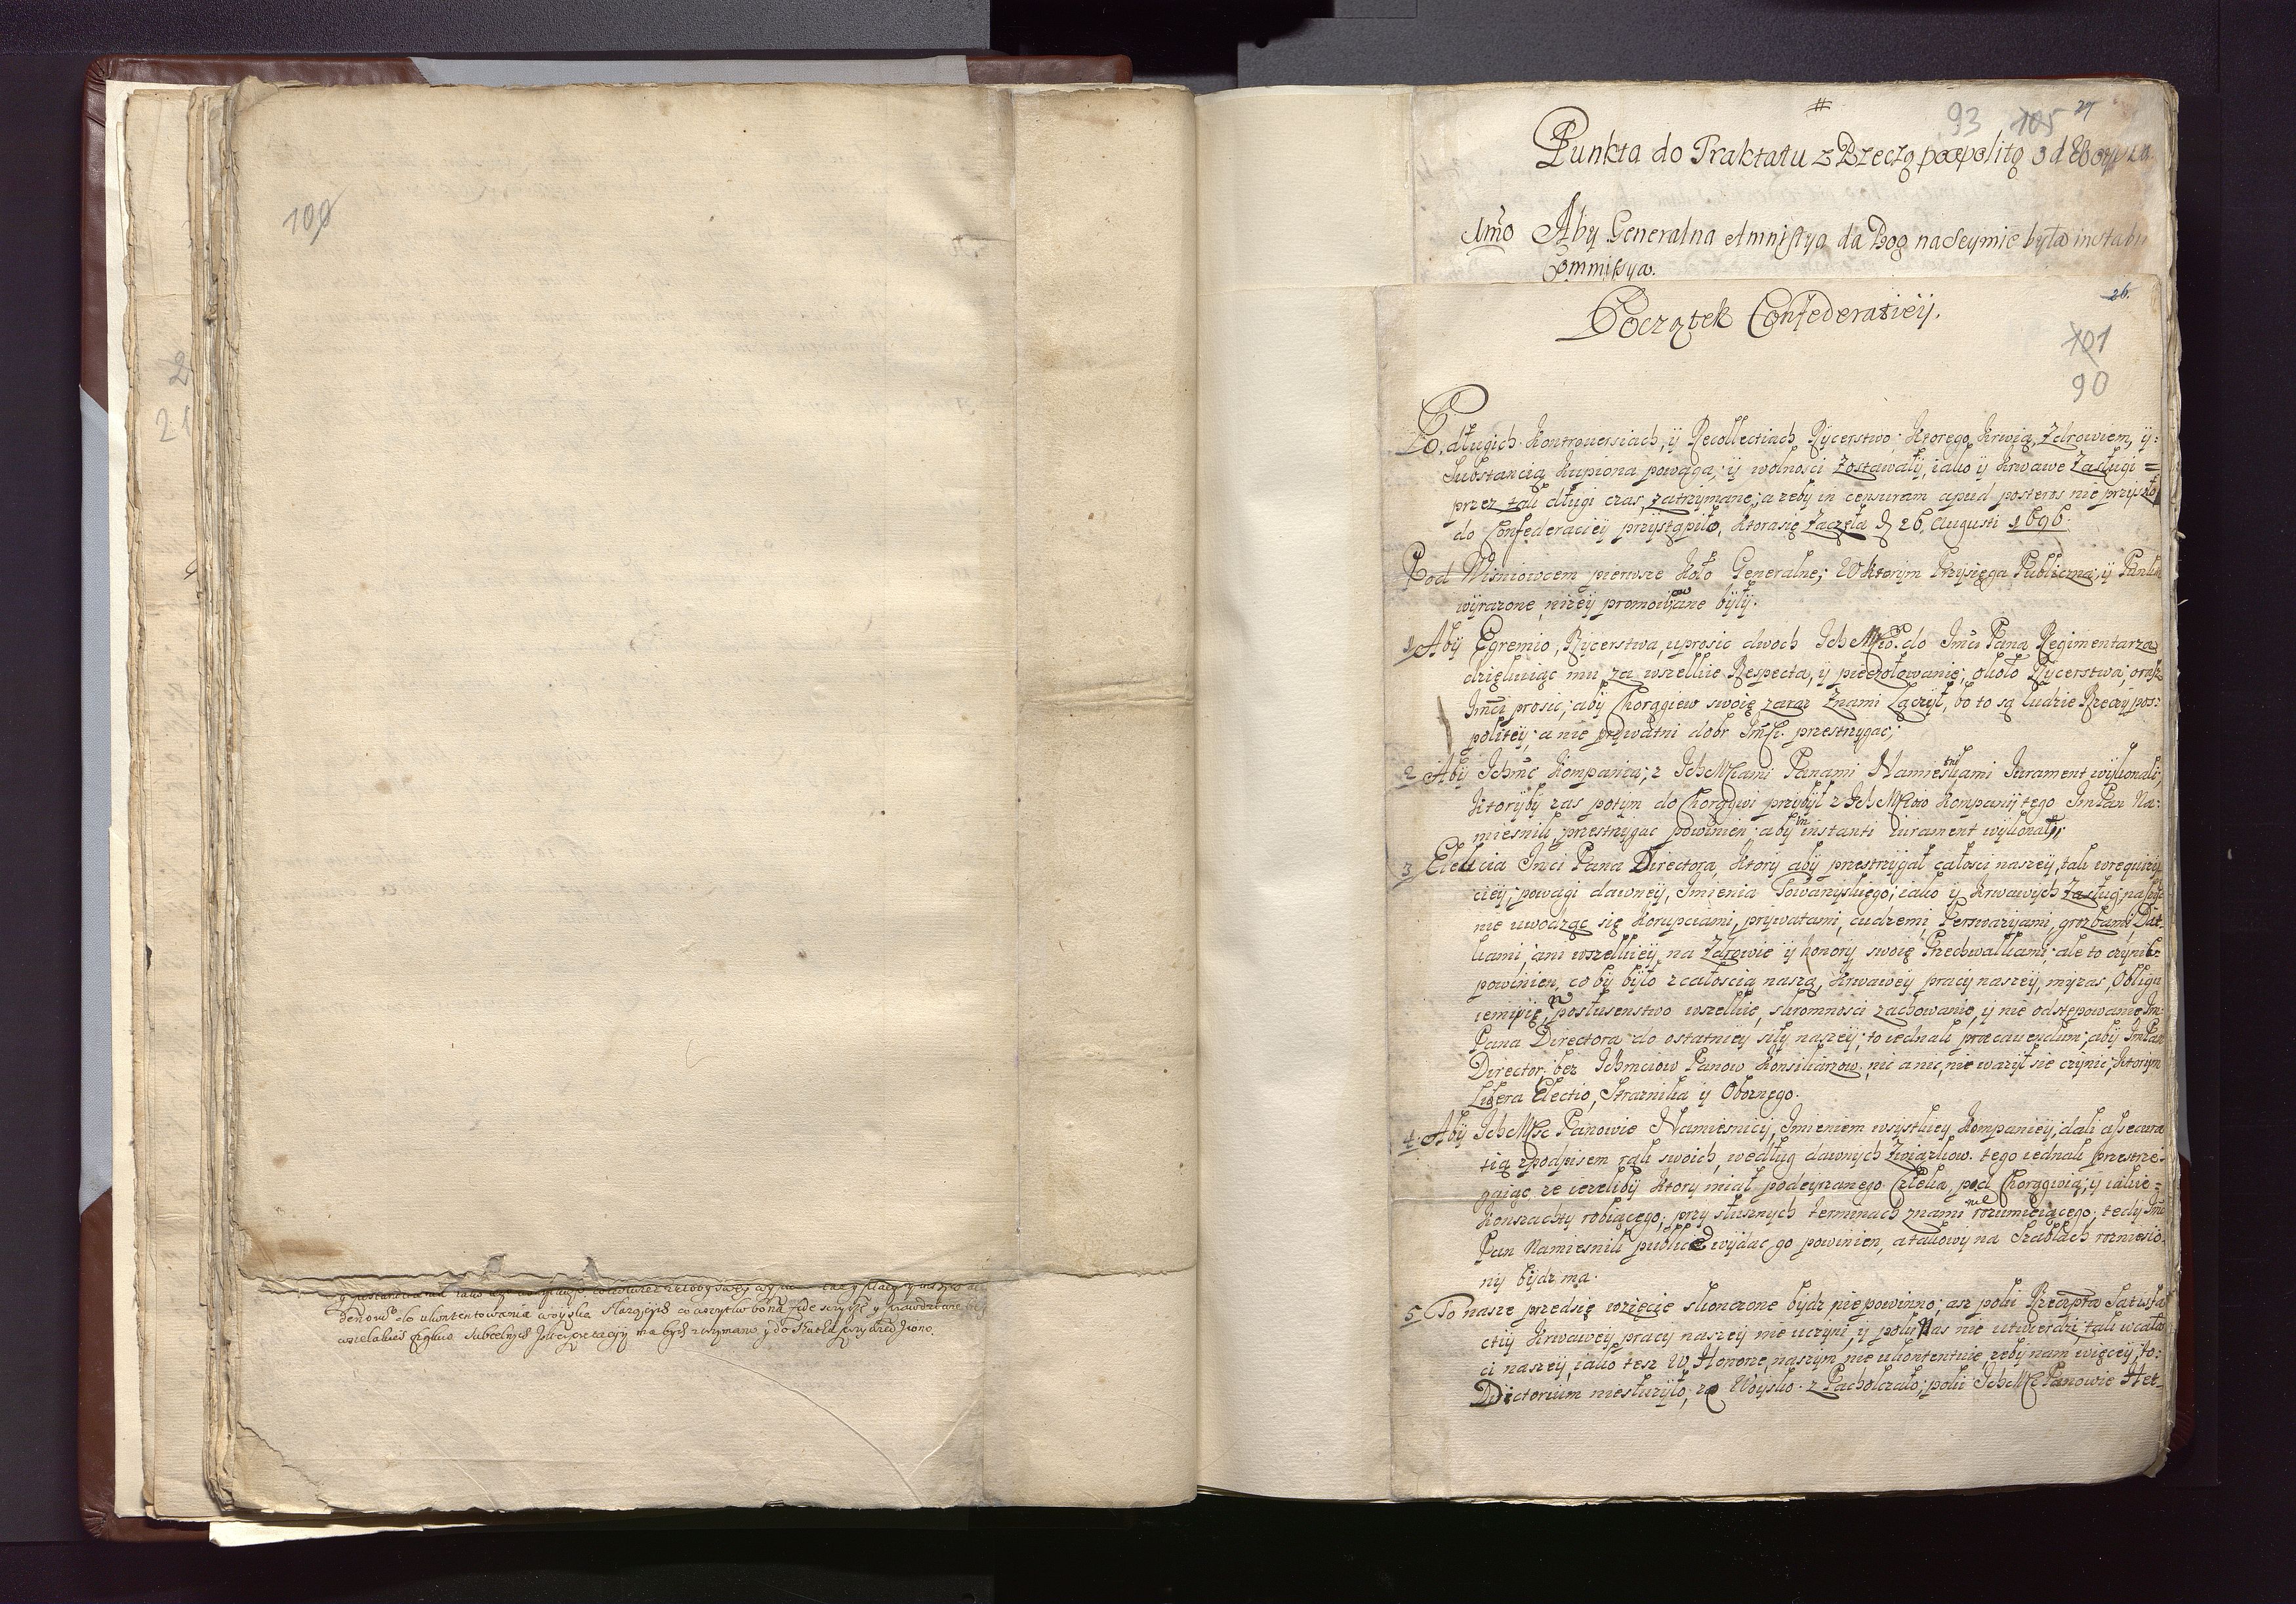 100
2
21
denow do ukontentowania woyska
93 105 27
Punkta do Traktatu z Rzecząpospolitą od
1mo Aby Generalna Amnistya da Bog na Seymie była
Commissya.
26.
Początek Confederatieÿ.
101
90
Po długich Kontrouersiach, ÿ Recollectiach Rÿcerstwo; Ktorego Krwią, Zdrowiem, ÿ:
Substancią Kupiona powaga, ÿ wolnosci Zostawałÿ, iako ÿ Krwawe Zasługi =
przez tak długi czas, zatrzÿmane; a zebÿ in censuram apud posteros nie przÿszło
do Confederacieÿ przÿstąpiło, Ktora się Zaczęła 26 Augusti 1696.
Pod Wisniowcem pierwsze Koło Generalne; W Ktorÿm Przÿsięga Publiczna, ÿ Punkta
wÿrazone nizeÿ promowane bÿłÿ.
1 Abÿ Egremio, Rÿcerstwa, uprosic dwoch Ich do Imci Pana Regimentarza
dziękuiąc mu za wszelkie Respecta, ÿ pieczołowanie, około Rÿcerstwa; oraz
Imci prosic; abÿ Chorągiew swoię zaraz Znami Łączÿł, bo to są ludzie Rzeczÿ pos:
politeÿ; a nie prÿwatni dobr przestrzÿgac;
2 Abÿ Ichmc Kompania; z IchMciami Panami Namiestnikami Iurament wÿkonali;
Ktorÿbÿ zas potÿm do Chorągwi przÿbÿł z IchMciow Kompanÿ tego ImPan Na:
miesnik, przestrzÿgac powinien abÿ in instanti iurament wÿkonał;
3 Elekcia Imci Pana Directora, Ktorÿ abÿ przestrzÿgał całosci naszeÿ, tak
cieÿ, powagi dawneÿ, Imienia Towarzÿskiego; iako ÿ Krwawÿch Zasług naszÿch
nie uwodząc się Korupciami, prÿwatami, cudzemi, Perswazÿami, grozbami,
ani wszelkieÿ na Zdrowie ÿ honorÿ swoię Przechwałkami; ale to czÿnic
powinien, co bÿ bÿło z całoscią naszą, Krwaweÿ pracÿ naszeÿ, mÿ zas, Obligu
iemÿ się, posłusenstwo wszelkie, skromnosci zachowanie, ÿ nie odstępowanie Im:
Pana Directora do ostatnieÿ siłÿ naszeÿ; to iednak præcauendum; abÿ ImPan
Director, bez Ichmciow Panow Konsiliarzow, nic a nic, nie wazÿł sie czÿnic; Ktorÿm
Libera Electio, Straznika ÿ Oboznego.
4. Abÿ IchMsc Panowie Namiesnicÿ, Imieniem wsÿstkieÿ Kompanieÿ, dali assecura
tią zpodpisem rąk swoich, według dawnÿch Związkow. tego iednak przestrze-
gaiąc, ze iezelibÿ Ktorÿ miał podeÿrzanego Człeka, pod Chorągwią; ÿ iakie =
Konszachtÿ robiącego; przÿ słusznÿch terminach znami nie rozumieiącego; tedÿ Imc
Pan Namiesnik publice wÿdac go powinien, a takowÿ na Szablach rozniesio:
nÿ bÿdz ma.
5 To nasze przedsię wzięcie skonczone bÿdz niepowinno; asz poki Rzeczpta Satisfa
ctiÿ Krwaweÿ pracÿ naszeÿ nie uczÿni, ÿ poki Nas nie utwierdzi tak wcałos
ci naszeÿ, iako tesz W Honorze, naszÿm nie ukontentuie, zebÿ nam więceÿ to:
Dictorium niesłuzÿło, ze Woÿsko z Pacholczało; poki IchMc Panowie Het-